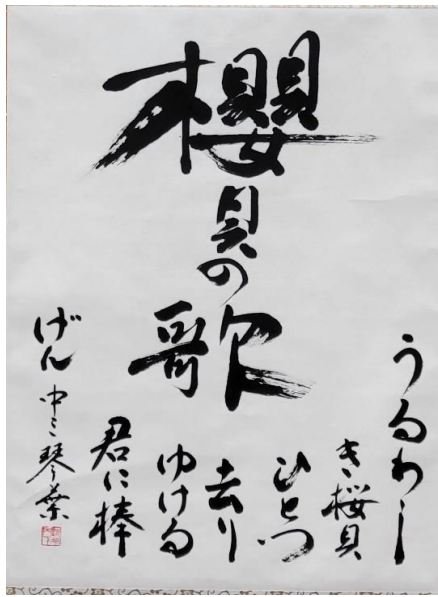 櫻
貝の
歌
うるわし
き桜貝
ひとつ
去り
ゆける
君に棒
げん 中三 琴葉